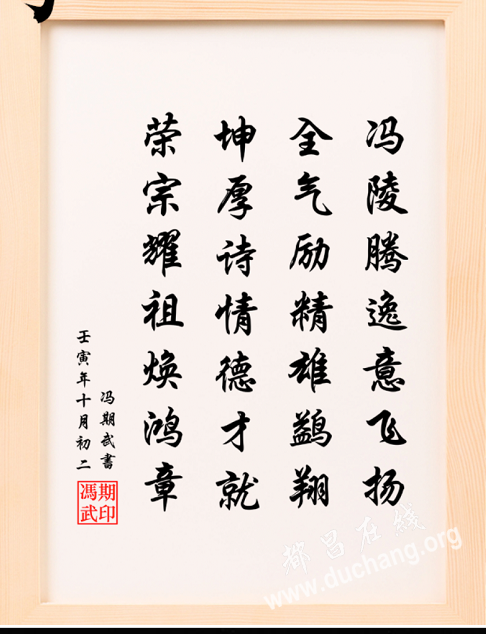 冯陵腾逸意飞扬
全气励精雄鹢翔
坤厚诗情德才就
荣宗耀祖焕鸿章
冯期武書
壬寅年十月初二
期印
馮武
都昌在线
www.duchang.org